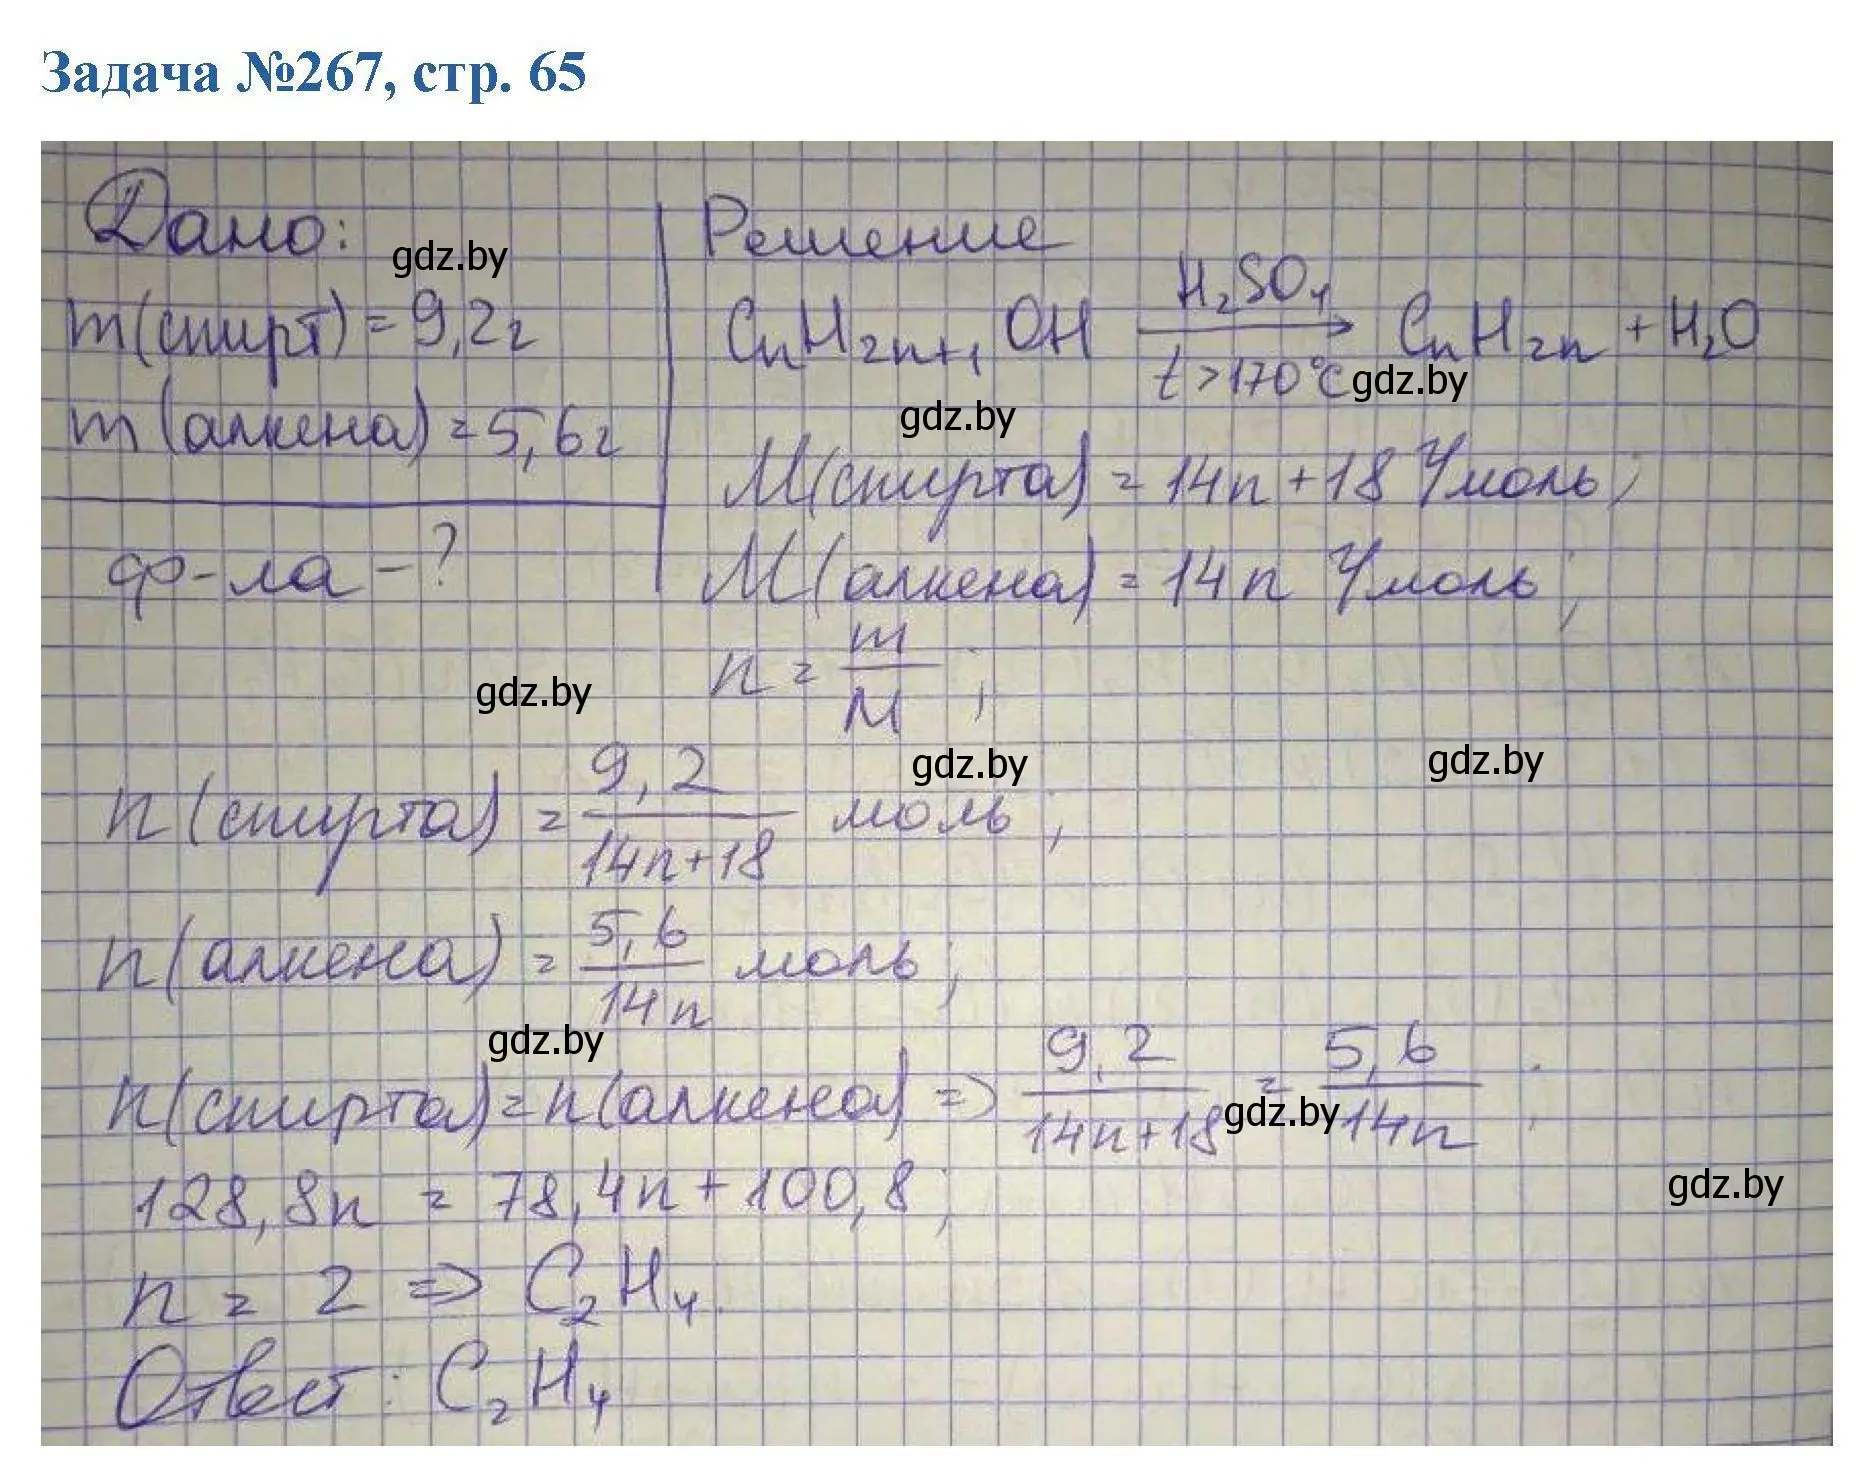 Задача №267, стр. 65
Дано:
m(спирт) = 9,2г
m(алкена) = 5,6г
ф-ла - ?
Решение
CnH2n+1OH H2SO4 t > 170°C → CnH2n + H2O
M(спирта) = 14n + 18 г/моль;
M(алкена) = 14n г/моль;
n = m/M;
n(спирта) = 9,2/14n+18 моль;
n(алкена) = 5,6/14n моль;
n(спирта) = n(алкена) => 9,2/14n+18 = 5,6/14n;
128,8n = 78,4n + 100,8;
n = 2 => C2H4.
Ответ: C2H4
gdz.by
gdz.by
gdz.by
gdz.by
gdz.by
gdz.by
gdz.by
gdz.by
gdz.by